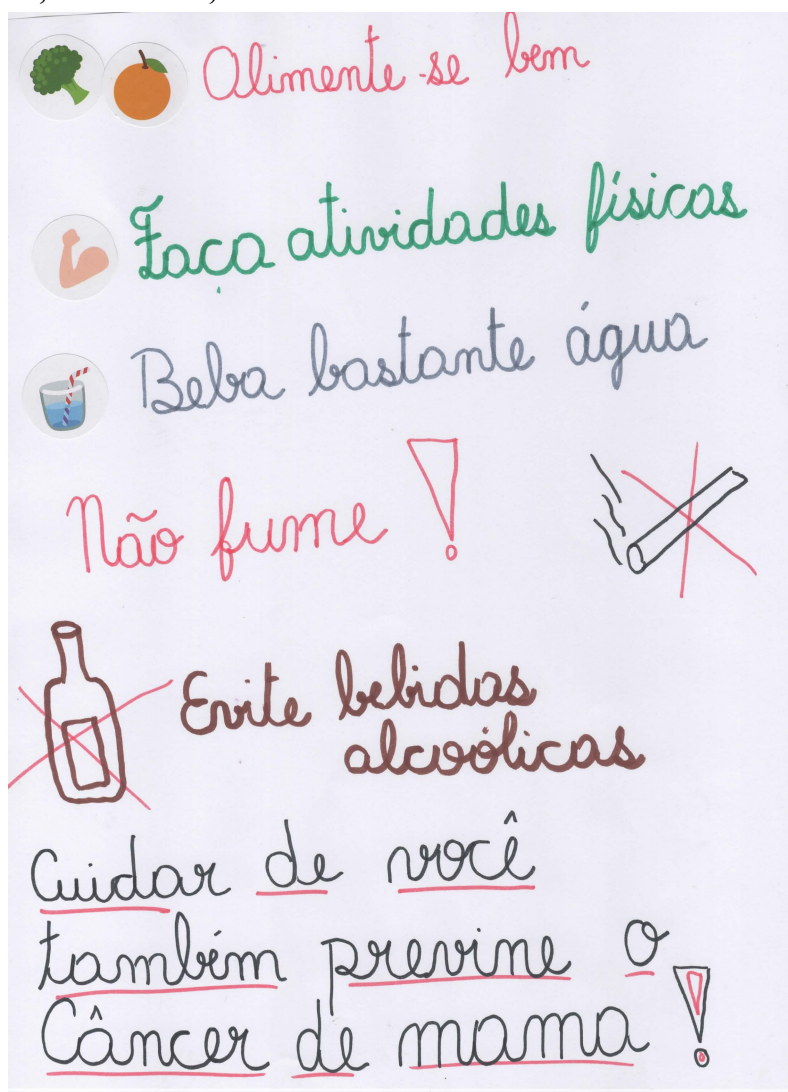 Alimente-se bem
Faça atividades físicas
Beba bastante água
Não fume!
Evite bebidas
alcoólicas
Cuidar de você
também previne o
Câncer de mama!